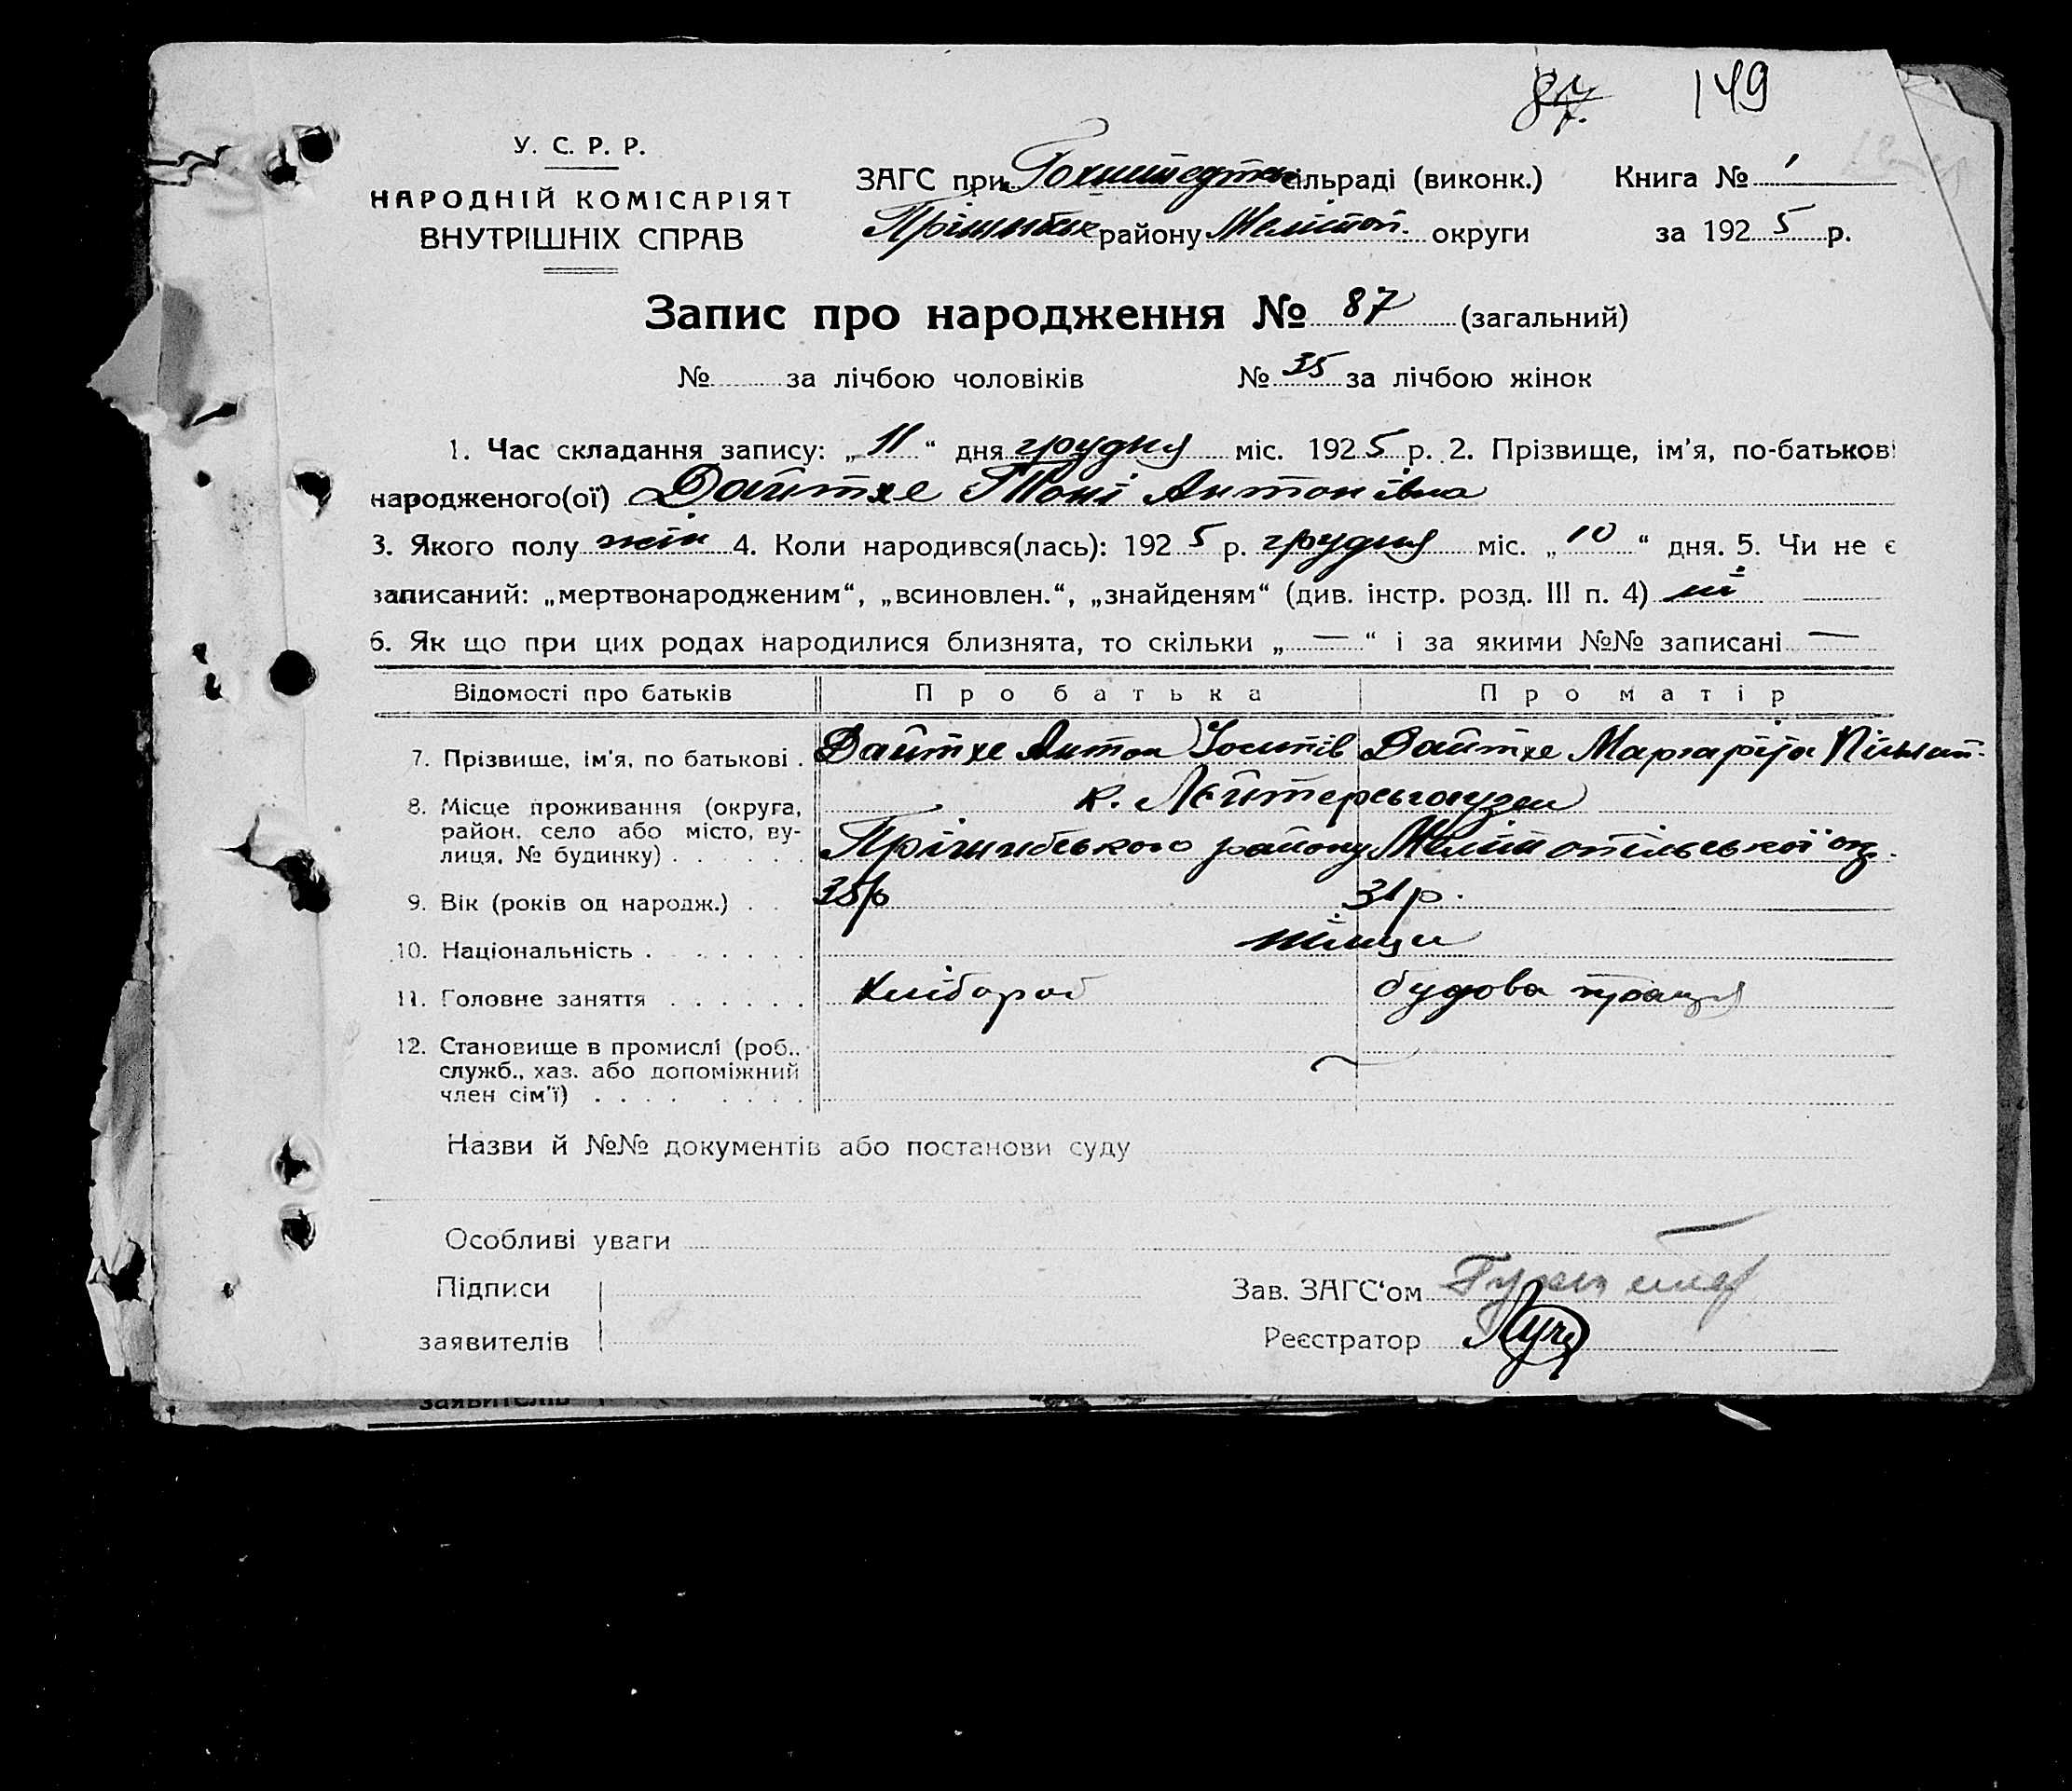 87. 149
У. С. Р. Р.
НАРОДНІЙ КОМІСАРІЯТ
ВНУТРІШНІХ СПРАВ
ЗАГС при Гохштедтск сільраді (виконк.) Книга № 1
Прішибськ району Мелітоп. округи за 1925 р.
Запис про народження № 87 (загальний)
№ за лічбою чоловіків № 35 за лічбою жінок
1. Час складання запису: „11“ дня грудня міс. 1925 р. 2. Прізвище, ім'я, по-батькові
народженого(ої) Дайтхе Тоні Антонівна
3. Якого полу жін 4. Коли народився(лась): 1925 р. грудня міс. „10“ дня. 5. Чи не є
записаний: „мертвонародженим“, „всиновлен.“, „знайденям“ (див. інстр. розд. III п. 4) ні
6. Як що при цих родах народилися близнята, то скільки „—“ і за якими №№ записані —
Відомості про батьків Про батька Про матір
7. Прізвище, ім'я, по батькові . Дайтхе Антон Йосипів Дайтхе Маргаріта
8. Місце проживання (округа, район, село або місто, ву-
лиця, № будинку) . . . . . . к. Лейтерсьгаузен
Прішибського району Мелітопільської ок.
9. Вік (років од народж.) . . 35р 31р.
10. Національність . . . . . . . німци
11. Головне заняття . . . . . . Хлібороб будова праця
12. Становище в промислі (роб.,
служб., хаз. або допоміжний
член сім'ї) . . . . . . . .
Назви й №№ документів або постанови суду
Особливі уваги
Підписи
заявителів
Зав. ЗАГС'ом
Реєстратор
заявителів